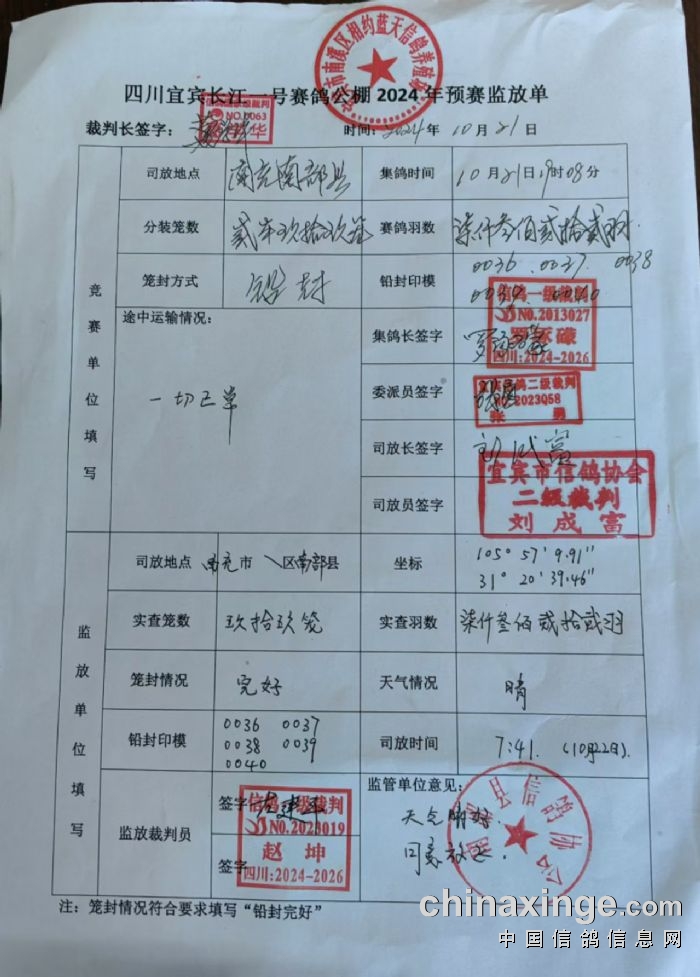 四川宜宾长江一号赛鸽公棚 2024 年预赛监放单
裁判长签字： 时间：2024年 10月 21日
NO.0063
竞赛单位填写
司放地点 南充南部县 集鸽时间 10月21日19时08分
分装笼数 赛鸽羽数 柒仟叁佰贰拾贰羽
笼封方式 铅封 铅封印模 0036 0037 0038
0039 0040
途中运输情况： 一切正常
集鸽长签字
信鸽一级裁判
NO.2013027
四川:2024-2026
委派员签字
宜宾信鸽二级裁判
2023Q58
张 勇
司放长签字 刘成富
司放员签字
宜宾市信鸽协会
二级裁判
刘成富
监放单位填写
司放地点 南充市 区南部县 坐标 105° 57′ 9.91″
31° 20′ 39.46″
实查笼数 玖拾玖笼 实查羽数 柒仟叁佰贰拾贰羽
笼封情况 完好 天气情况 晴
铅封印模 0036 0037
0038 0039
0040
司放时间 7:41. (10月22日).
监放裁判员 签字
签字
信鸽一级裁判
NO.2023019
赵 坤
四川:2024-2026
监管单位意见：
天气晴好.
同意放飞.
注：笼封情况符合要求填写“铅封完好”
chinaxinge.com
中国信鸽信息网